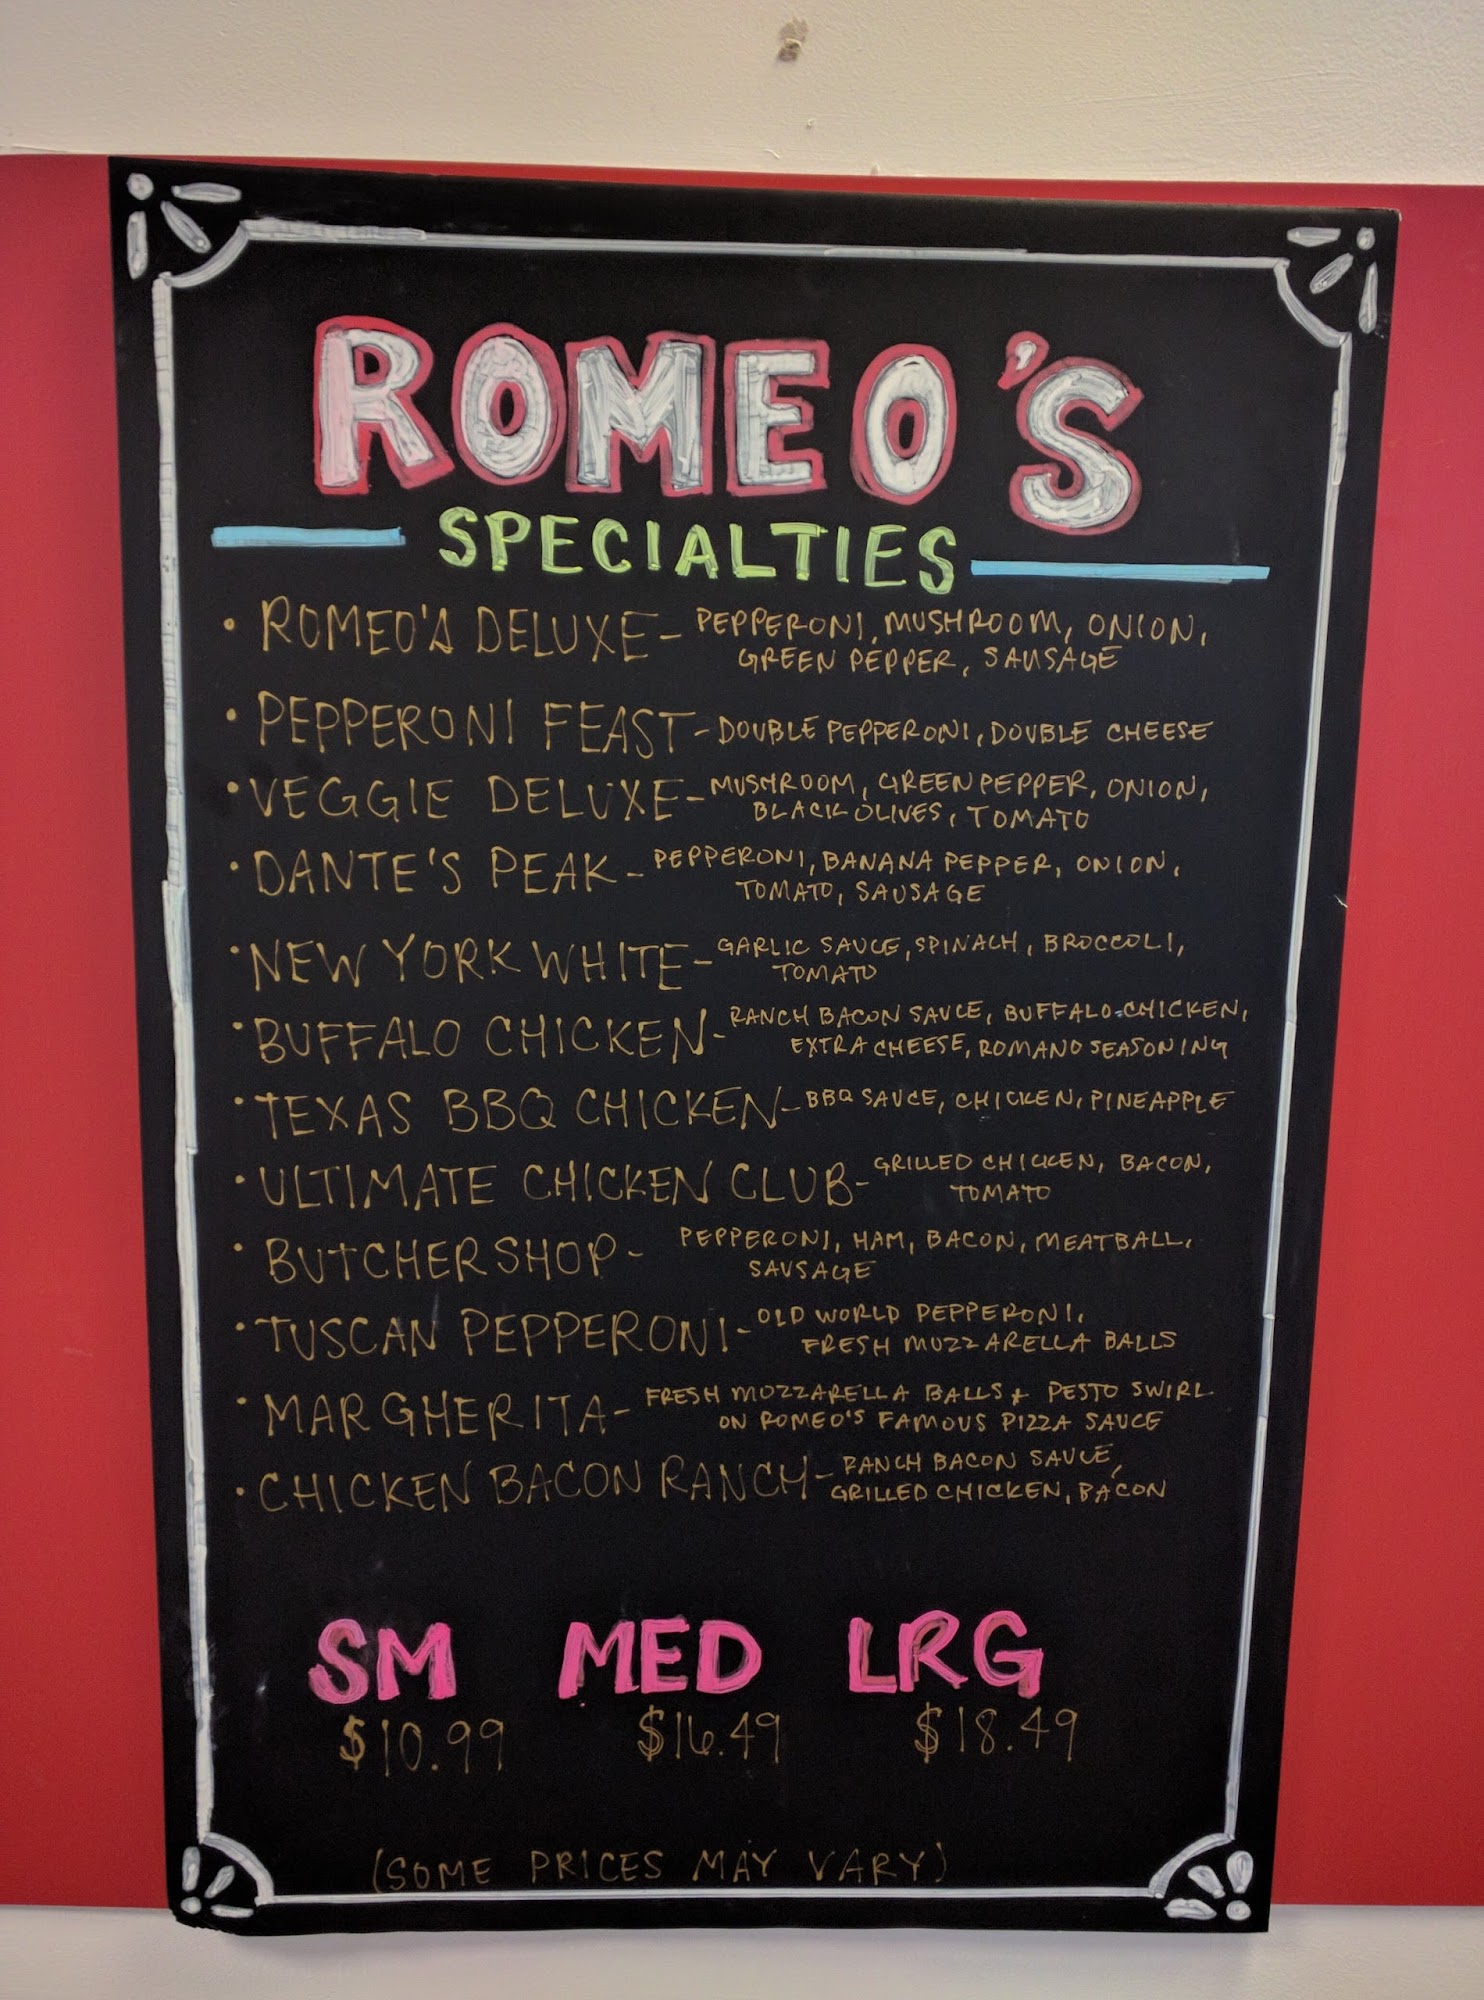 ROMEO'S
SPECIALTIES
• ROMEO'S DELUXE - PEPPERONI, MUSHROOM, ONION,
GREEN PEPPER, SAUSAGE
• PEPPERONI FEAST - DOUBLE PEPPERONI, DOUBLE CHEESE
• VEGGIE DELUXE - MUSHROOM, GREEN PEPPER, ONION,
BLACK OLIVES, TOMATO
• DANTE'S PEAK - PEPPERONI, BANANA PEPPER, ONION,
TOMATO, SAUSAGE
• NEW YORK WHITE - GARLIC SAUCE, SPINACH, BROCCOLI,
TOMATO
• BUFFALO CHICKEN - RANCH BACON SAUCE, BUFFALO-CHICKEN,
EXTRA CHEESE, ROMANO SEASONING
• TEXAS BBQ CHICKEN - BBQ SAUCE, CHICKEN, PINEAPPLE
• ULTIMATE CHICKEN CLUB - GRILLED CHICKEN, BACON,
TOMATO
• BUTCHER SHOP - PEPPERONI, HAM, BACON, MEATBALL,
SAUSAGE
• TUSCAN PEPPERONI - OLD WORLD PEPPERONI,
FRESH MOZZARELLA BALLS
• MARGHERITA - FRESH MOZZARELLA BALLS + PESTO SWIRL
ON ROMEO'S FAMOUS PIZZA SAUCE
• CHICKEN BACON RANCH - RANCH BACON SAUCE,
GRILLED CHICKEN, BACON
SM MED LRG
$10.99 $16.49 $18.49
(SOME PRICES MAY VARY)